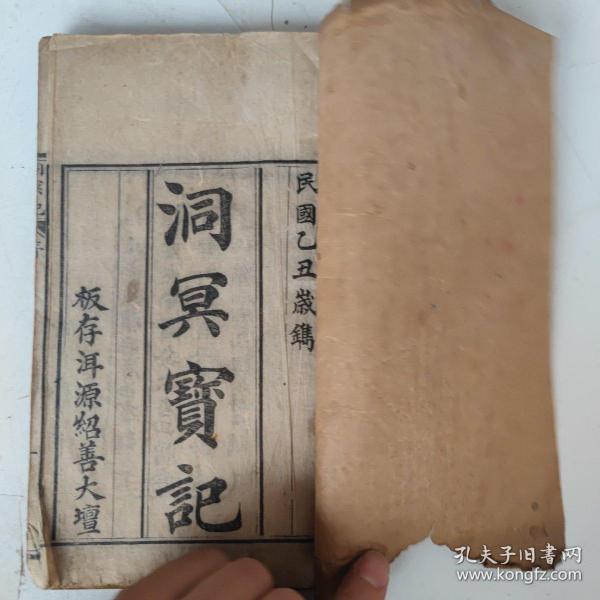 民國乙丑歲鐫
洞冥寶記
板存洱源紹善大壇
孔夫子旧书网
www.kongfz.com